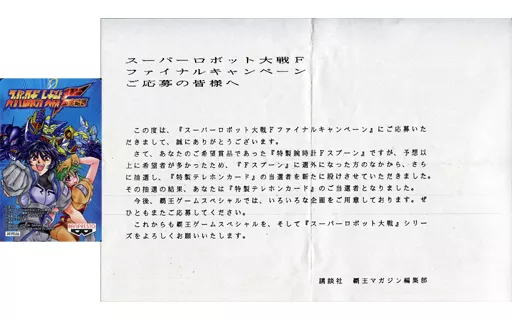 スーパーロボット大戦F
ファイナルキャンペーン
ご応募の皆様へ
この度は、『スーパーロボット大戦Fファイナルキャンペーン』にご応募いた
だきまして、誠にありがとうございます。
さて、あなたのご希望賞品であった『特製腕時計Fスプーン』ですが、予想以
上に希望者が多かったため、『Fスプーン』に選外になった方のなかから、さら
に抽選し、『特製テレホンカード』の当選者を新たに設けさせていただきました。
その抽選の結果、あなたは『特製テレホンカード』のご当選者となりました。
今後、覇王ゲームスペシャルでは、いろいろな企画をご用意しております。ぜ
ひともまたご応募してください。
これからも覇王ゲームスペシャルを、そして『スーパーロボット大戦』シリー
ズをよろしくお願いいたします。
講談社 覇王マガジン編集部
BANPRESTO